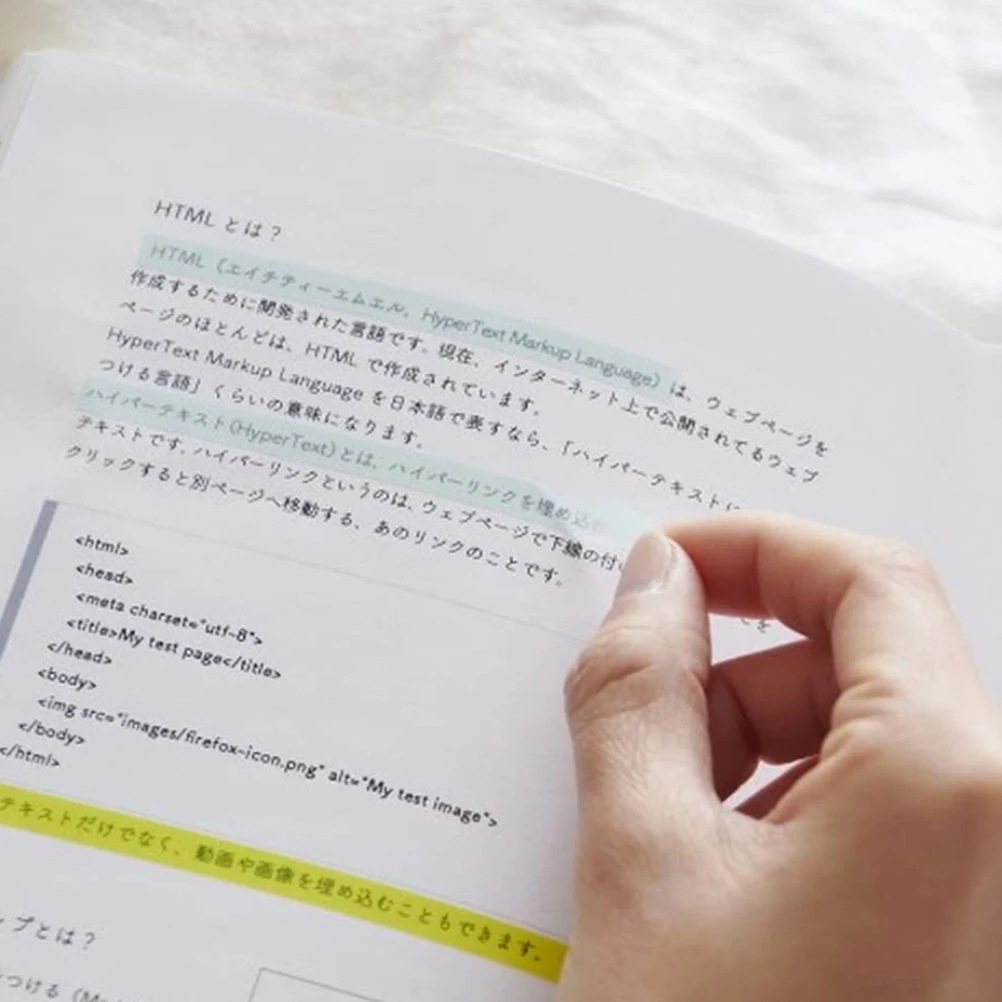 HTML とは？
HTML（エイチティーエムエル、HyperText Markup Language）は、ウェブページを
作成するために開発された言語です。現在、インターネット上で公開されてるウェブ
ページのほとんどは、HTML で作成されています。
HyperText Markup Language を日本語で表すなら、「ハイパーテキストに
つける言語」くらいの意味になります。
ハイパーテキスト(HyperText)とは、ハイパーリンクを埋め込む
テキストです。ハイパーリンクというのは、ウェブページで下線の付
クリックすると別ページへ移動する、あのリンクのことです。
を
<html>
<head>
<meta charset="utf-8">
<title>My test page</title>
</head>
<body>
<img src="images/firefox-icon.png" alt="My test image">
</body>
</html>
テキストだけでなく、動画や画像を埋め込むこともできます。
ップとは？
つける